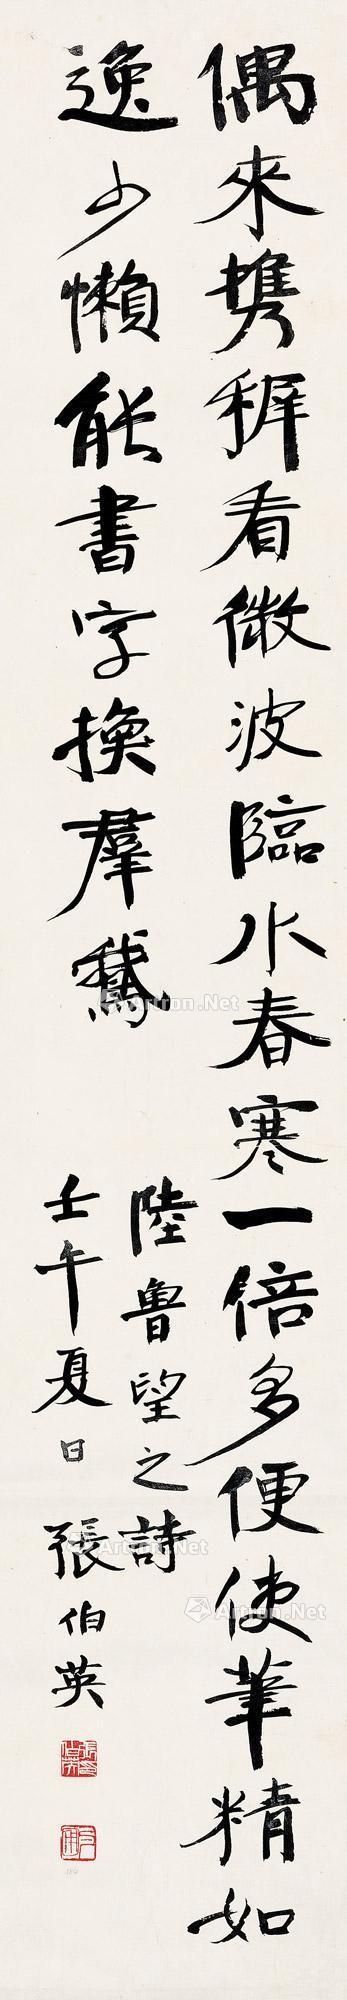 偶來携穉看微波臨水春寒一倍多便使筆精如
逸少懶能書字換羣鵞
陸魯望之詩
壬午夏日張伯英
Artron.Net
Artron.Net
Artron.Net
Artron.Net